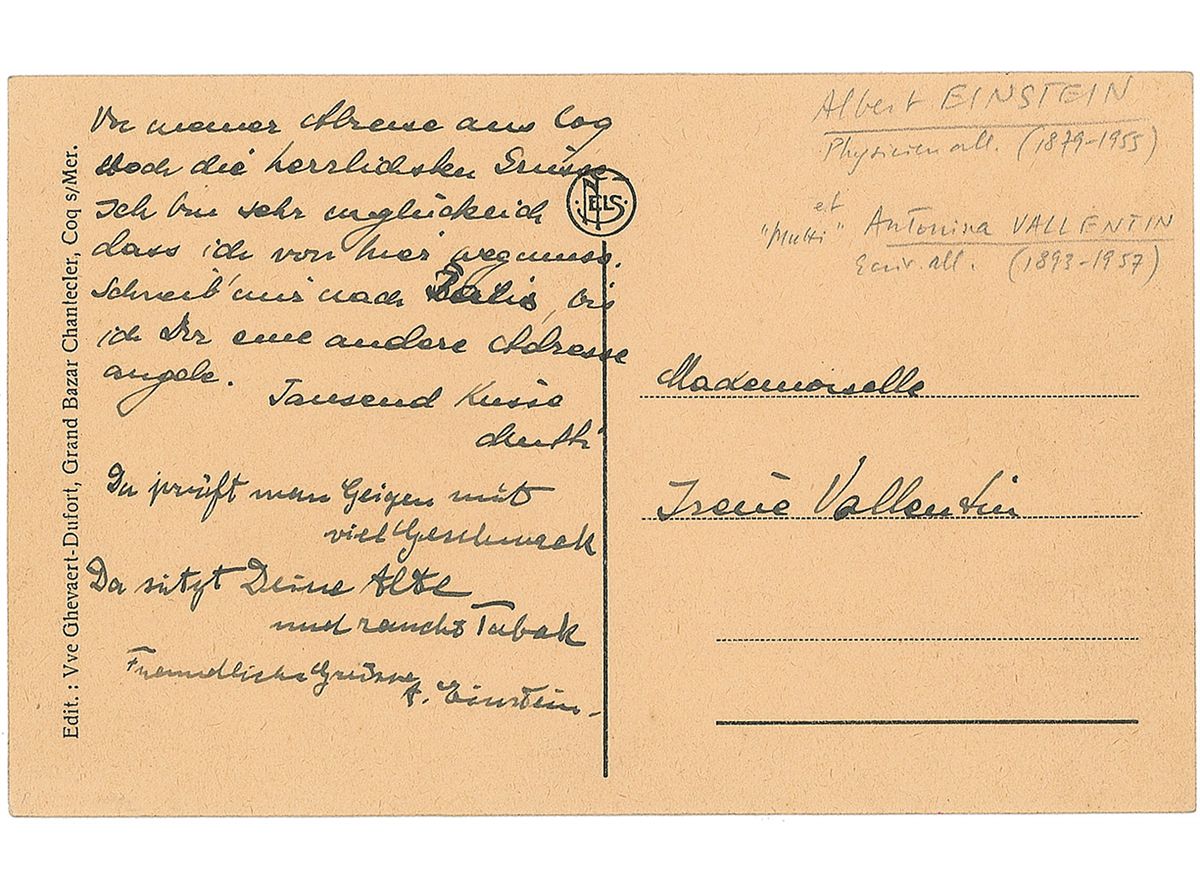 Vor meiner Abreise aus Coq
noch die herzlichsten Grüsse
Ich bin sehr unglücklich
dass ich von hier wegmuss.
Schreib' mir nach bis
ich Dir eine andere Adresse
angebe.
Tausend Küsse
Mutti
Da prüft man Geigen mit
viel Geschmack
Da sitzt Deine Alte
und raucht Tabak
Freundliche Grüsse
A. Einstein.
Edit. : Vve Ghevaert-Dufort, Grand Bazar Chantecler, Coq s/Mer.
NELS
Albert EINSTEIN
Physicien all. (1879-1955)
et
"Mutti" Antonina VALLENTIN
Ecriv. all. (1893-1957)
Mademoiselle
Irene Vallentin